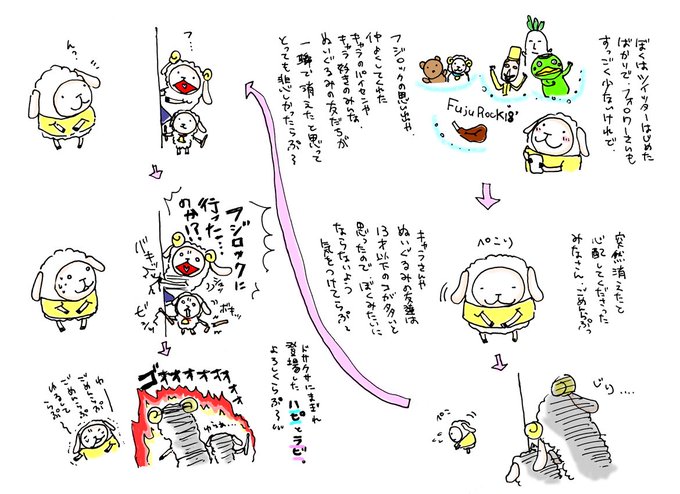 ぼくはツイッターはじめた
ばかりで、フォロワーさんも
すっごく少ないけれど、
FujuRock18'
フジロックの思い出や、
仲よくしてくれた
キャラのパイセンや
キャラ好きのみんな、
ぬいぐるみの友だちが
一瞬で消えたと思って
とっても悲しかったらぷ〜
突然消えたと
心配してくださった
みなさん…ごめんらぷっ
ぺこり
キャラさんや
ぬいぐるみの友達は
13才以下のコが多いと
思ったので、ぼくみたいに
ならないよう
気をつけてらぷ〜
じり....
ぺこ
フ…
んっ?
フジロックに
行った…
のか!?
バキッ
ボキッ
ゴオオオオオオオ
ゆらぁ…
ごめんらぷ
ごめんらぷ
ゆるして
らぷ
ドサクサにまぎれ
登場したハピとラビ。
よろしくらぷ〜ω